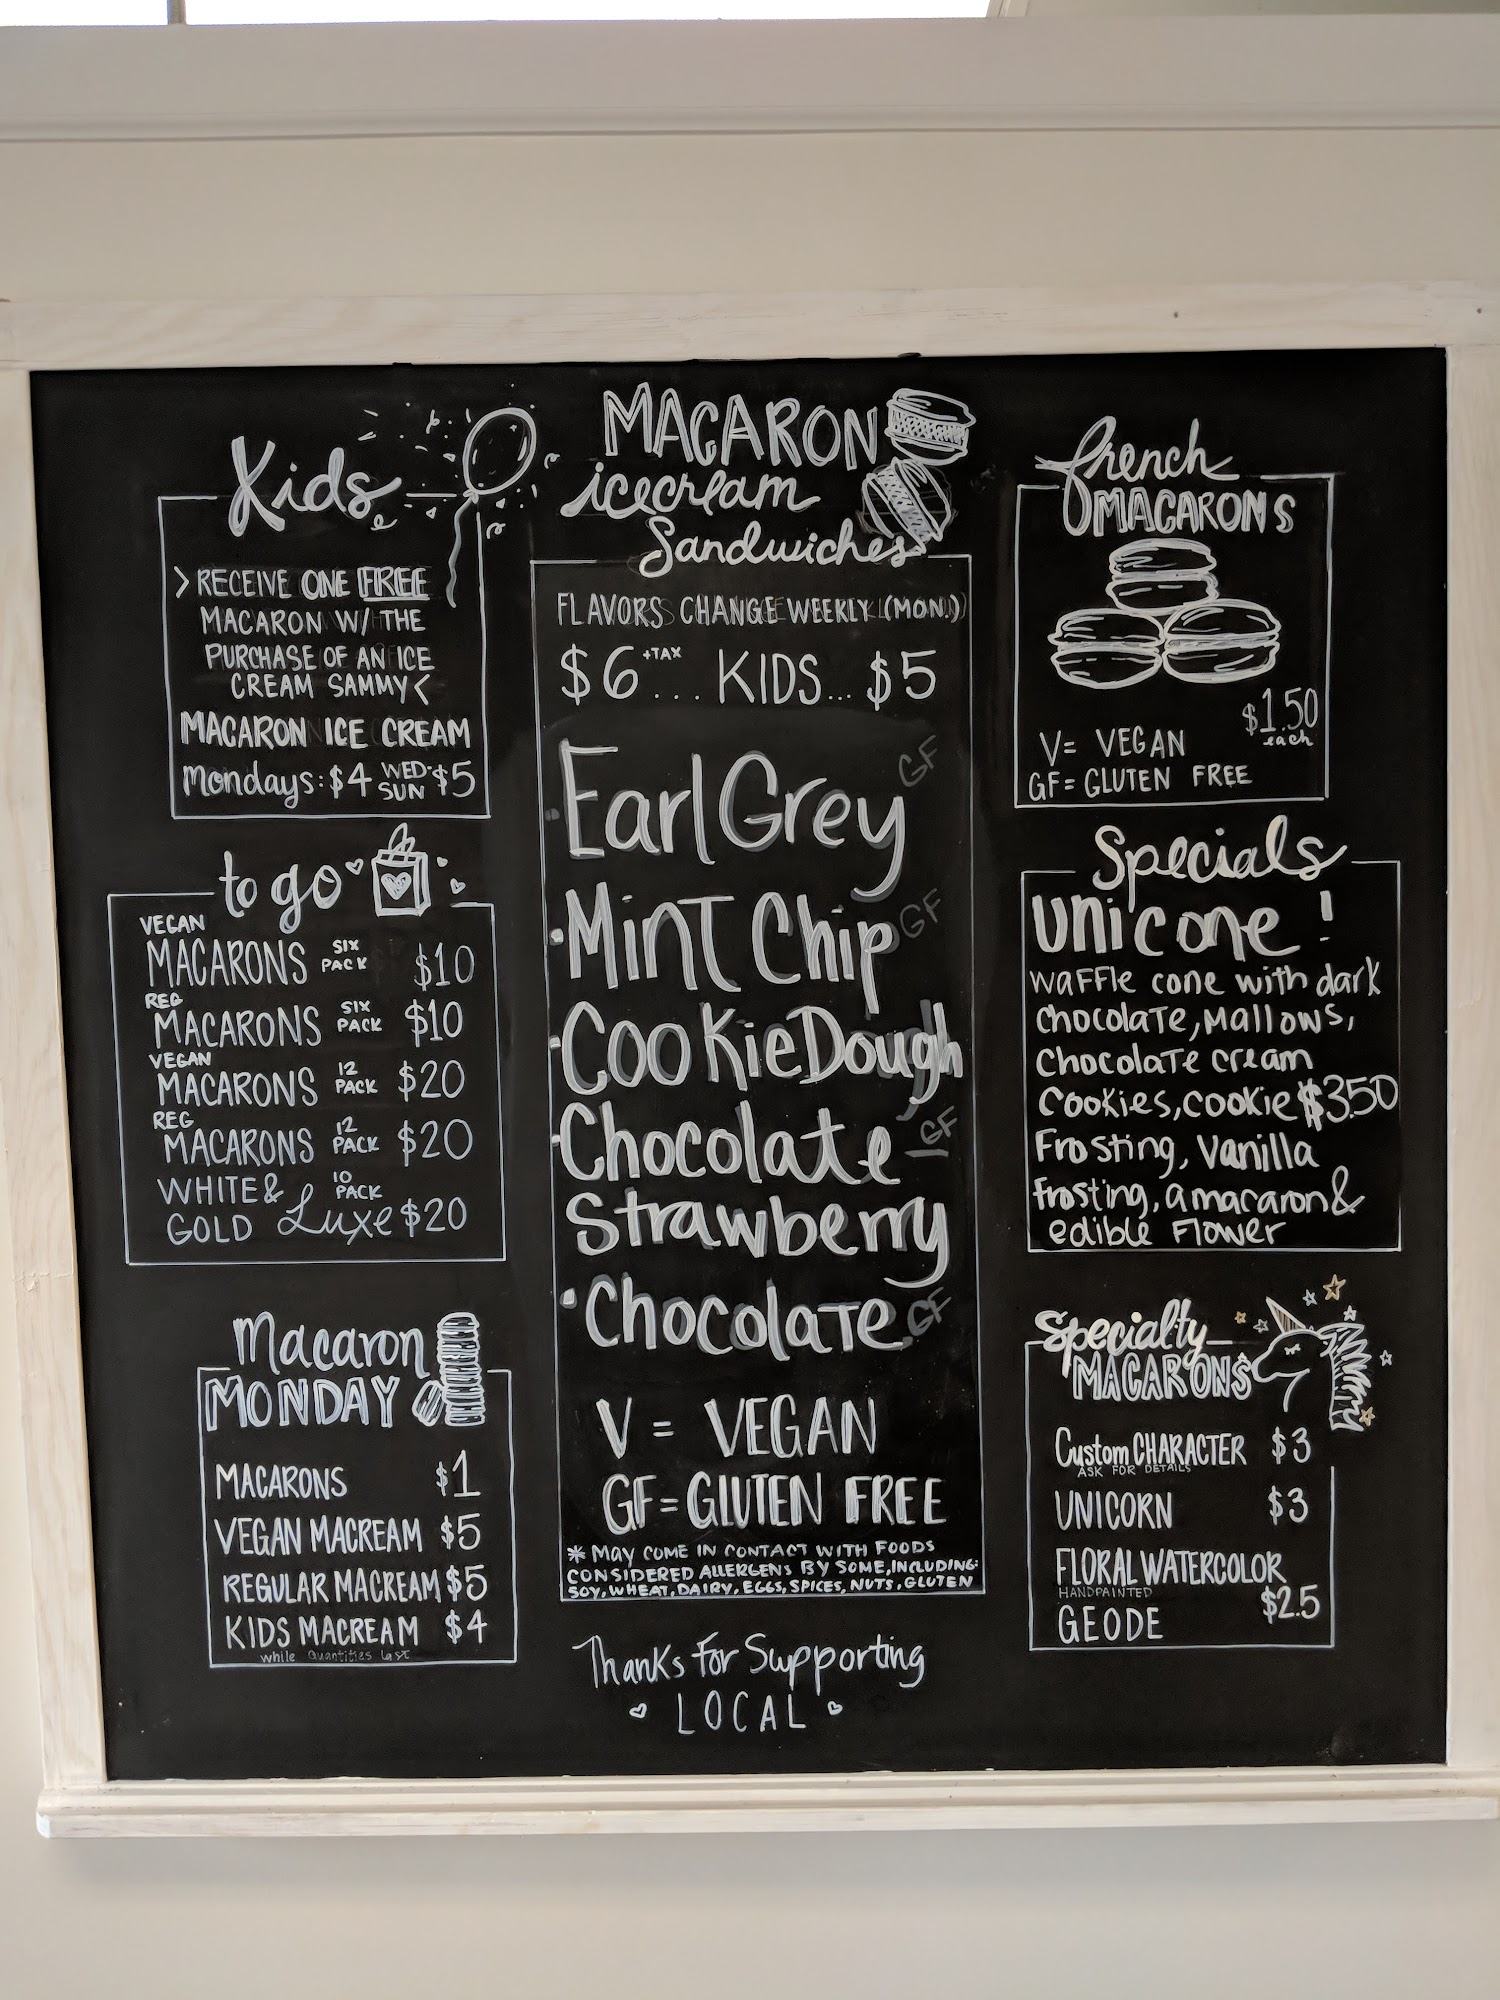 Kids
> RECEIVE ONE FREE
MACARON W/ THE
PURCHASE OF AN ICE
CREAM SAMMY <
MACARON ICE CREAM
Mondays: $4 WED-SUN $5
to go
VEGAN
MACARONS SIX PACK $10
REG
MACARONS SIX PACK $10
VEGAN
MACARONS 12 PACK $20
REG
MACARONS 12 PACK $20
WHITE & GOLD Luxe 10 PACK $20
Macaron
MONDAY
MACARONS $1
VEGAN MACREAM $5
REGULAR MACREAM $5
KIDS MACREAM $4
while quantities last
MACARON
icecream
Sandwiches
FLAVORS CHANGE WEEKLY (MON.)
$6 +TAX ... KIDS... $5
· Earl Grey GF
· Mint Chip GF
· Cookie Dough
· Chocolate GF
Strawberry
· Chocolate GF
V = VEGAN
GF = GLUTEN FREE
* MAY COME IN CONTACT WITH FOODS
CONSIDERED ALLERGENS BY SOME, INCLUDING:
SOY, WHEAT, DAIRY, EGGS, SPICES, NUTS, GLUTEN
Thanks For Supporting
LOCAL
french
MACARONS
$1.50
each
V= VEGAN
GF= GLUTEN FREE
Specials
unicone!
waffle cone with dark
chocolate, mallows,
chocolate cream
cookies, cookie $3.50
Frosting, vanilla
frosting, a macaron &
edible flower
Specialty
MACARONS
Custom CHARACTER $3
ASK FOR DETAILS
UNICORN $3
FLORAL WATERCOLOR
HANDPAINTED
$2.5
GEODE